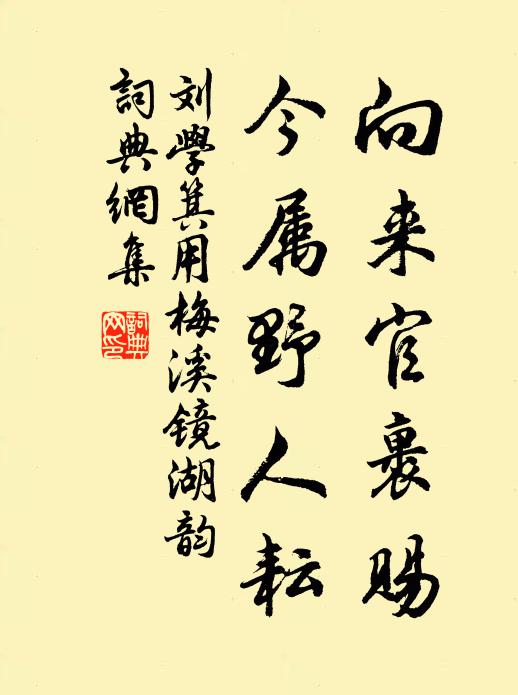 向来官裹赐
今属野人耘
刘学箕用梅溪镜湖韵
詞典網集
詞典
网印